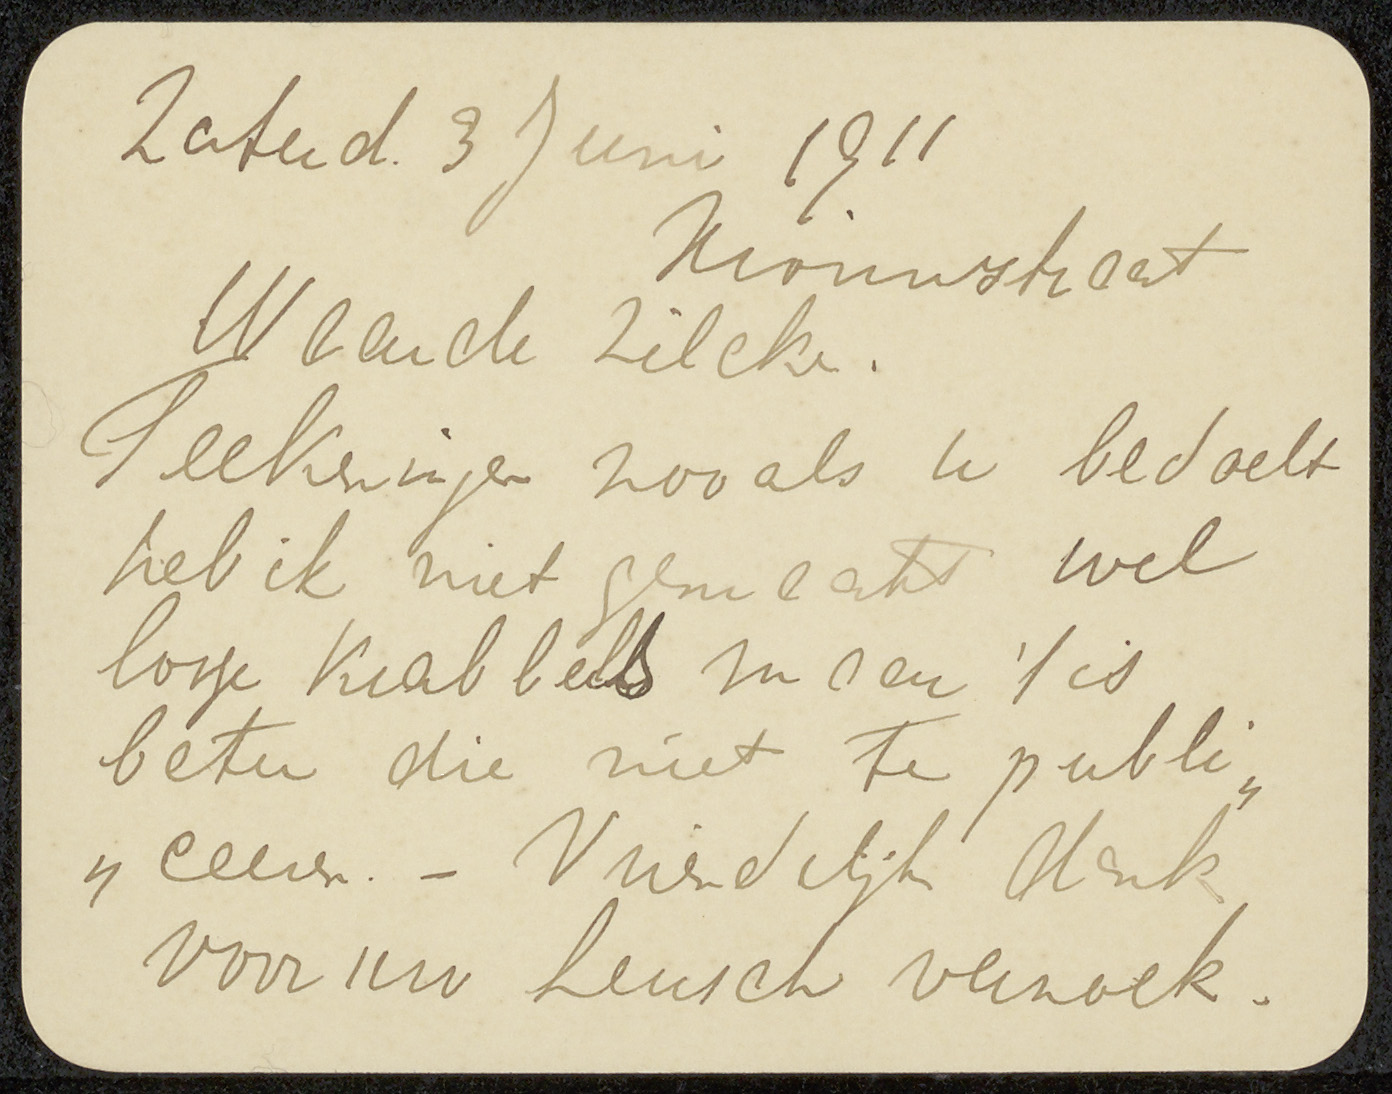 Zaterd. 3 Juni 1911
Waarde Zilcke.
Teekeningen zooals u bedoelt
heb ik niet gemaakt wel
losse krabbels maar 't is
beter die niet te publi„
„ceeren. – Vriendelijk dank
voor uw heusch verzoek.